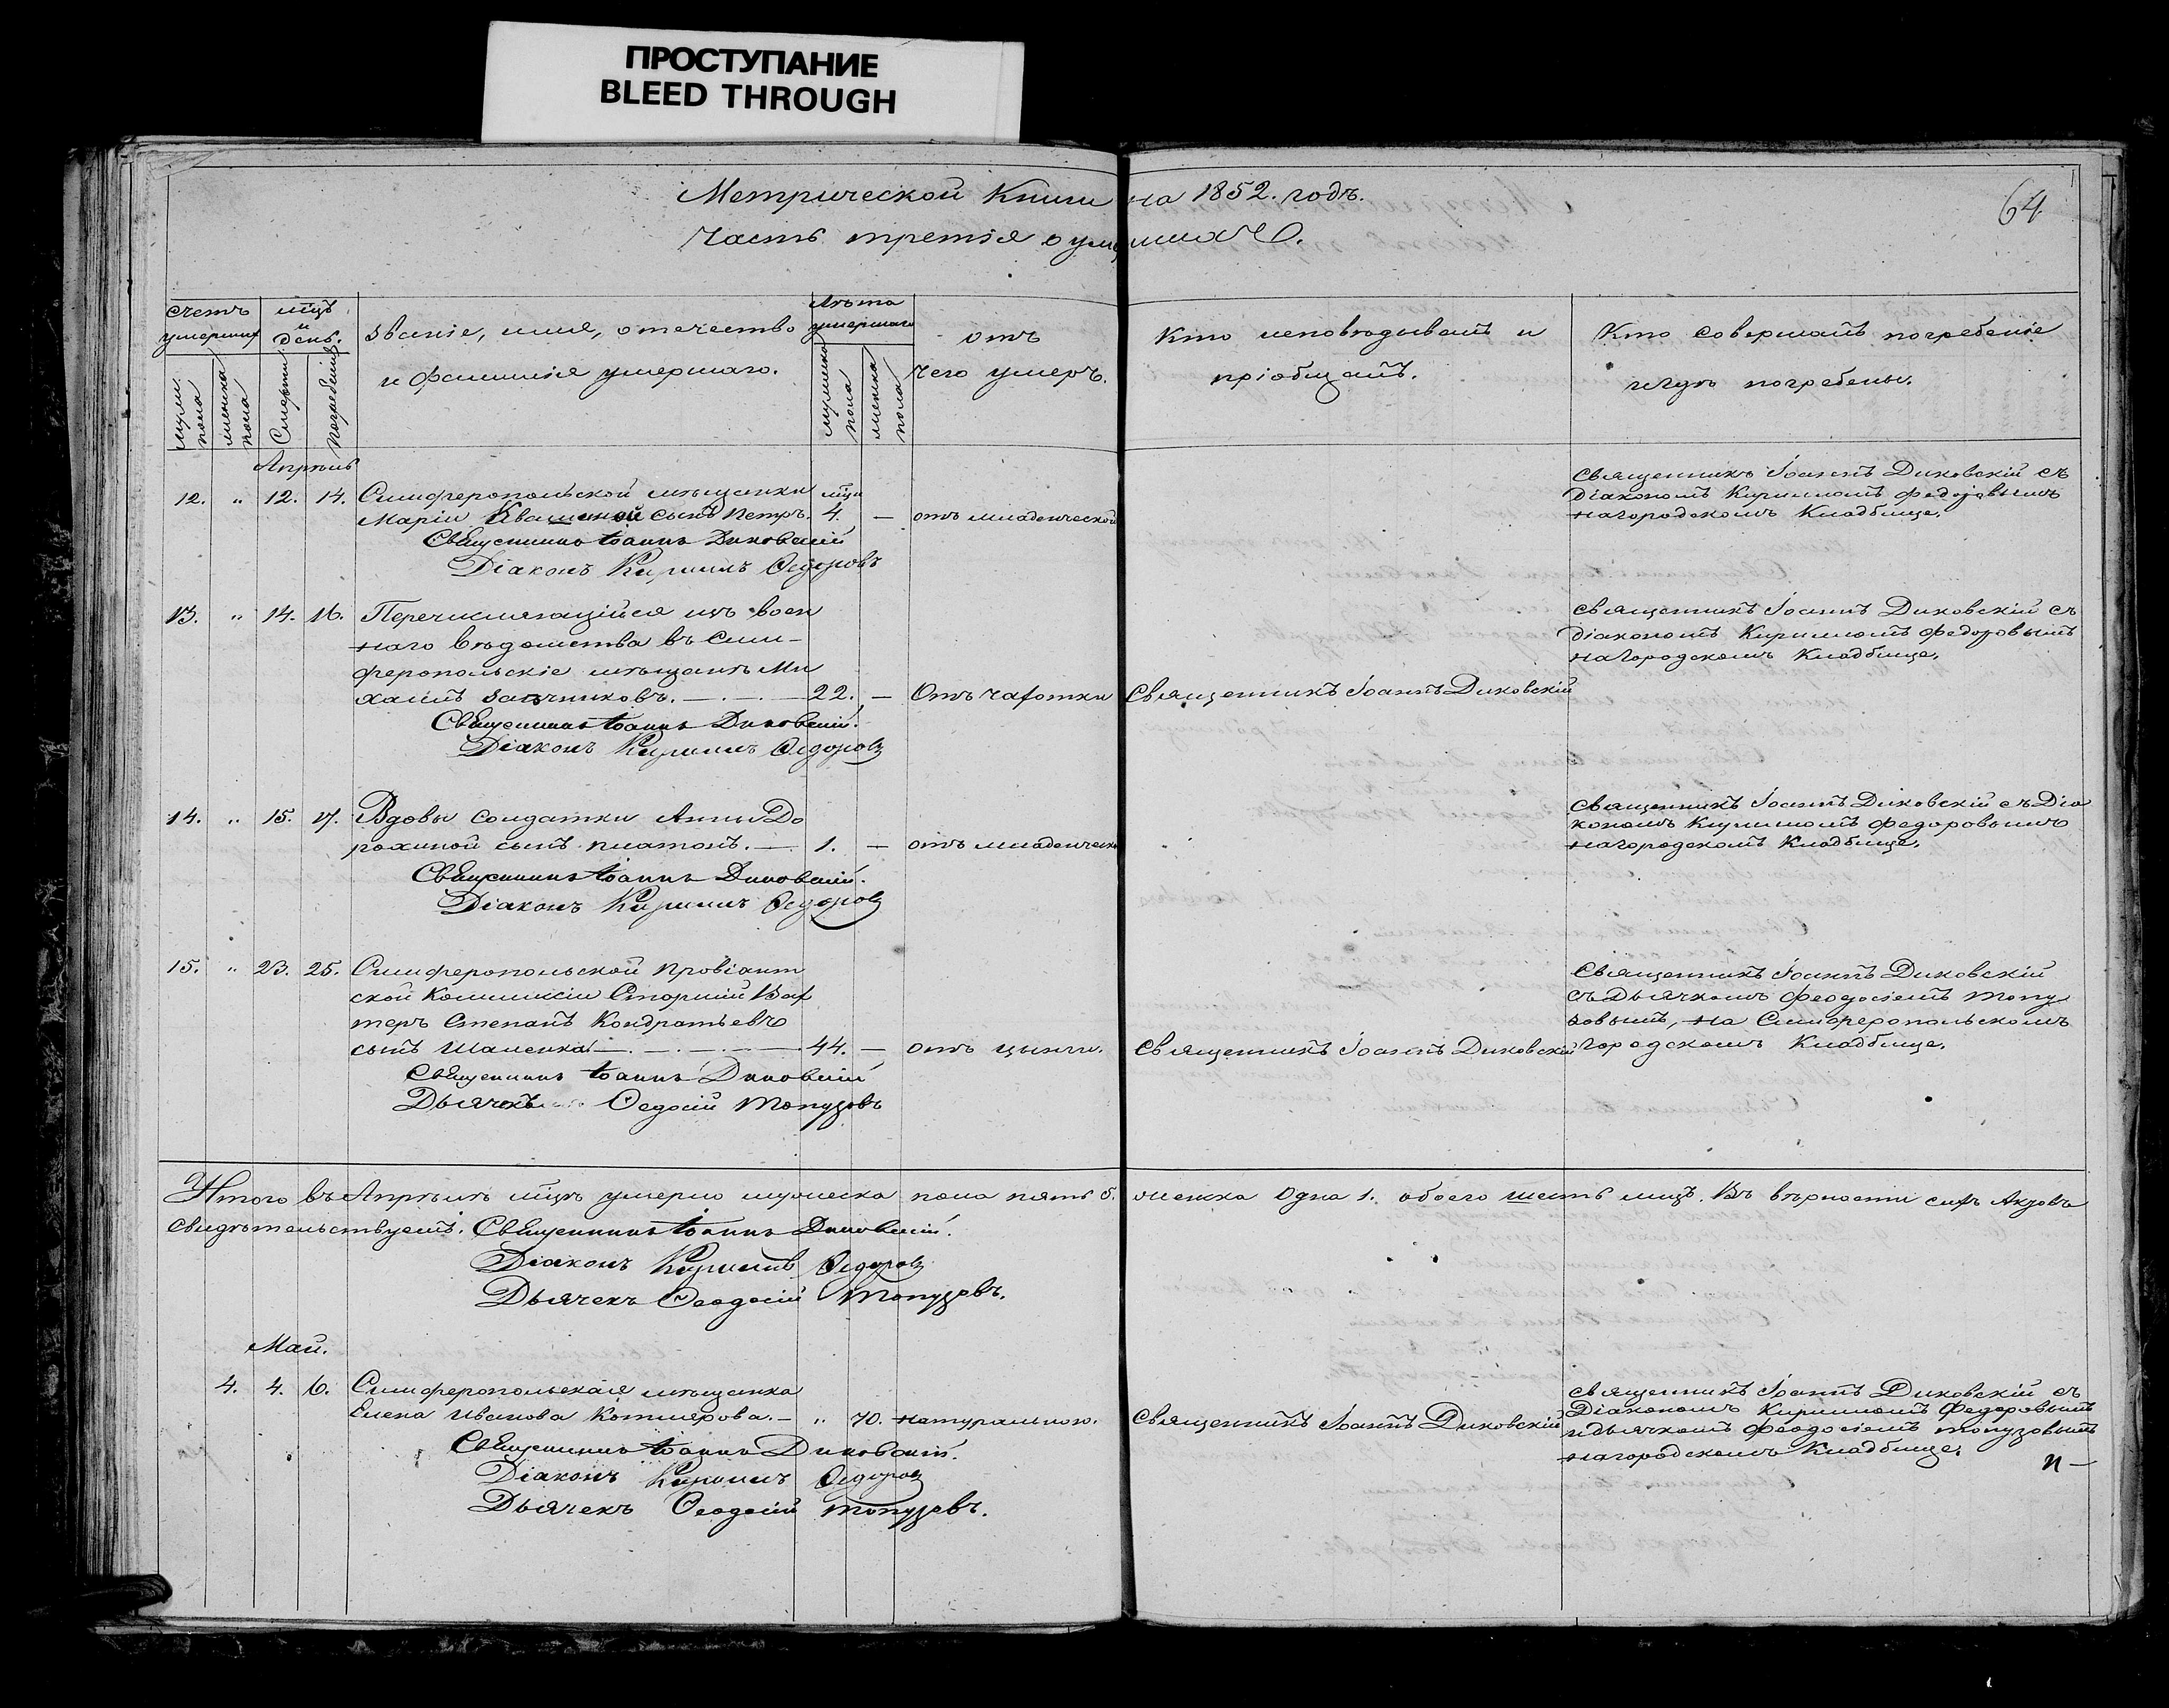 ПРОСТУПАНИЕ
BLEED THROUGH
Метрической Книги на 1852. годъ.
Часть третія о умершихъ.
64
счетъ умершихъ
мужс. пола
женска пола
мцъ и день.
Смерти
Погребенія
Званіе, имя, отечество
и фамилія умершаго.
Лѣта умершаго
мужеска пола
женска пола
отъ
чего умеръ.
Кто исповѣдывалъ и
пріобщалъ.
Кто совершалъ погребеніе
и гдѣ погребены.
Апрѣль
12. " 12. 14. Симферопольской мѣщанки мцы
Маріи сынъ Петръ. 4. — отъ младенческой
Священникъ Іоаннъ Диковскій
Діаконъ Кириллъ Ѳедоровъ
Священникъ Іоаннъ Диковскій съ
Діакономъ Кирилломъ Федоровымъ
на городскомъ Кладбище.
13. " 14. 16. Перечисляющійся изъ воен
наго вѣдомства въ Сим-
феропольскіе мѣщанъ Ми
хаилъ . — 22. — Отъ чахотки Священникъ Іоаннъ Диковскій
Священникъ Іоаннъ Диковскій.
Діаконъ Кириллъ Ѳедоровъ
Священникъ Іоаннъ Диковскій съ
діакономъ Кирилломъ Федоровымъ
на городскомъ Кладбище.
14. " 15. 17. Вдовы солдатки Анны До
рохиной сынъ Платонъ. — 1. — отъ младенческ
Священникъ Іоаннъ Диковскій.
Діаконъ Кириллъ Ѳедоровъ
Священникъ Іоаннъ Диковскій съ Діа
кономъ Кирилломъ Федоровымъ
на городскомъ Кладбище.
15. " 23. 25. Симферопольской Провіант
ской Коммиксіи Старшій Вах
теръ Степанъ Кондратьевъ
сынъ Шаленка — 44. — отъ цынги. Священникъ Іоаннъ Диковскій
Священникъ Іоаннъ Диковскій
Дьячекъ Ѳедосій Топузовъ
Священникъ Іоаннъ Диковскій
съ Дьячкомъ Феодосіемъ Топу
зовымъ, на Симферопольскомъ
городскомъ Кладбище.
Итого въ Апрѣлѣ мцѣ умерло мужеска пола пять 5. женска одна 1. обоего шесть лицъ. Въ вѣрности сихъ Актовъ
свидѣтельствуемъ. Священникъ Іоаннъ Диковскій.
Діаконъ Кириллъ Ѳедоровъ
Дьячекъ Ѳеодосій Топузовъ.
Май.
4. 4. 6. Симферопольская мѣщанка
Елена Иванова Котлярова. — " 70. натурально. Священникъ Іоаннъ Диковскій
Священникъ Іоаннъ Диковскій.
Діаконъ Кириллъ Ѳедоровъ
Дьячекъ Ѳеодосій Топузовъ.
Священникъ Іоаннъ Диковскій съ
Діакономъ Кирилломъ Федоровымъ
и дьячкомъ Феодосіемъ Топузовымъ
на городскомъ Кладбище.